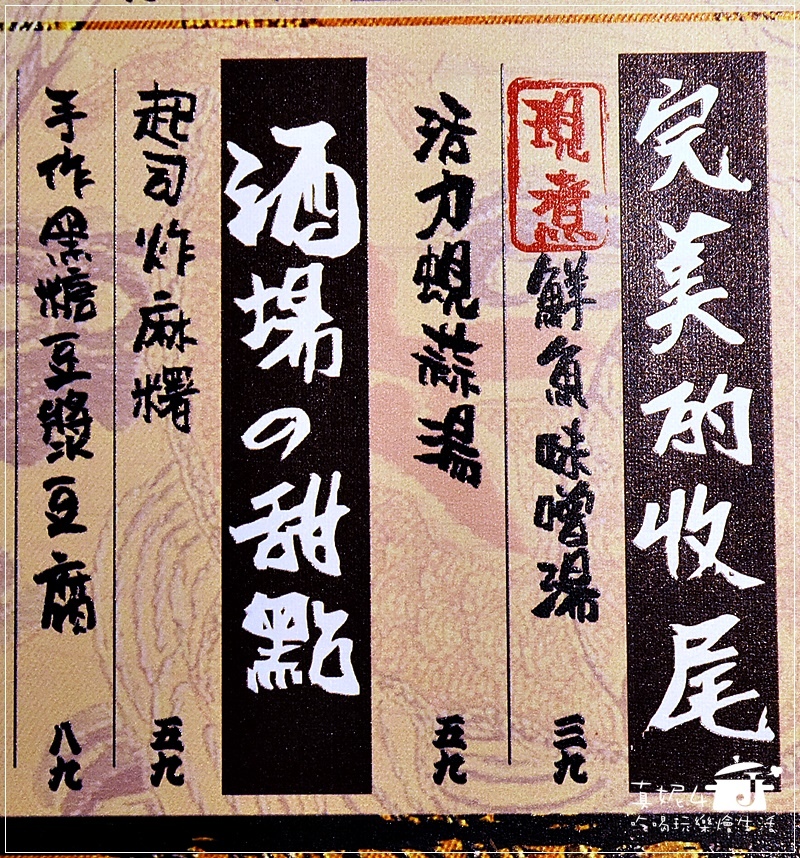 完美的收尾
現煮鮮魚味噌湯 三九
活力蜆蒜湯 五九
酒場の甜點
起司炸麻糬 五九
手作黑糖豆漿豆腐 八九
真妮
吃喝玩樂燴生活